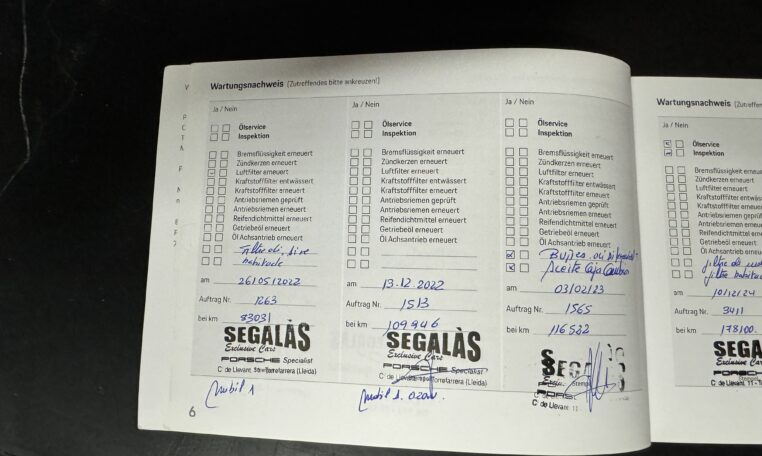 Wartungsnachweis (Zutreffendes bitte ankreuzen!)
Ja / Nein
Ölservice
Inspektion
Bremsflüssigkeit erneuert
Zündkerzen erneuert
Luftfilter erneuert
Kraftstofffilter entwässert
Kraftstofffilter erneuert
Antriebsriemen geprüft
Antriebsriemen erneuert
Reifendichtmittel erneuert
Getriebeöl erneuert
Öl Achsantrieb erneuert
Filtre oli, aire
habitacle
am 26/05/2022
Auftrag Nr. 1263
bei km 83031
SEGALÀS
Exclusive Cars
PORSCHE Specialist
C de Llevant, Torrefarrera (Lleida)
Mobil 1
6
Ja / Nein
Ölservice
Inspektion
Bremsflüssigkeit erneuert
Zündkerzen erneuert
Luftfilter erneuert
Kraftstofffilter entwässert
Kraftstofffilter erneuert
Antriebsriemen geprüft
Antriebsriemen erneuert
Reifendichtmittel erneuert
Getriebeöl erneuert
Öl Achsantrieb erneuert
am 13.12.2022
Auftrag Nr. 1513
bei km 109946
SEGALÀS
Exclusive Cars
PORSCHE Specialist
C de Llevant Torrefarrera (Lleida)
Mobil 1.
Ja / Nein
Ölservice
Inspektion
Bremsflüssigkeit erneuert
Zündkerzen erneuert
Luftfilter erneuert
Kraftstofffilter entwässert
Kraftstofffilter erneuert
Antriebsriemen geprüft
Antriebsriemen erneuert
Reifendichtmittel erneuert
Getriebeöl erneuert
Öl Achsantrieb erneuert
Aceite Caja Cambio
am 03/02/23
Auftrag Nr. 1565
bei km 116522
C de Llevant 11
Wartungsnachweis
Ja / Nein
Ölservice
Inspektion
Bremsflüssigkeit erneuert
Zündkerzen erneuert
Luftfilter erneuert
Kraftstofffilter entwässert
Kraftstofffilter erneuert
Antriebsriemen geprüft
Antriebsriemen erneuert
Reifendichtmittel erneuert
Getriebeöl erneuert
Öl Achsantrieb erneuert
filtre de
filtre
am 10/12/24
Auftrag Nr. 3411
bei km 178100
SEGAL
Exclusive Car
PORSCHE
C de Llevant, 11